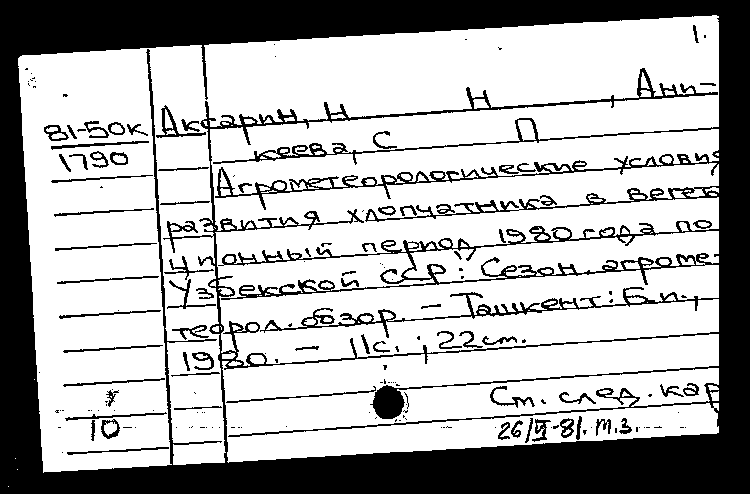 1.
81-50к Аксарин, Н Н , Ани-
1790 кеева, С П
Агрометеорологические условия
развития хлопчатника в вегета
ционный период 1980 года по
Узбекской ССР: Сезон. агроме-
теорол. обзор. – Ташкент: Б.и.,
1980. – 11с. ; 22см.
См. след. кар
10
26/VI-81. т.з.